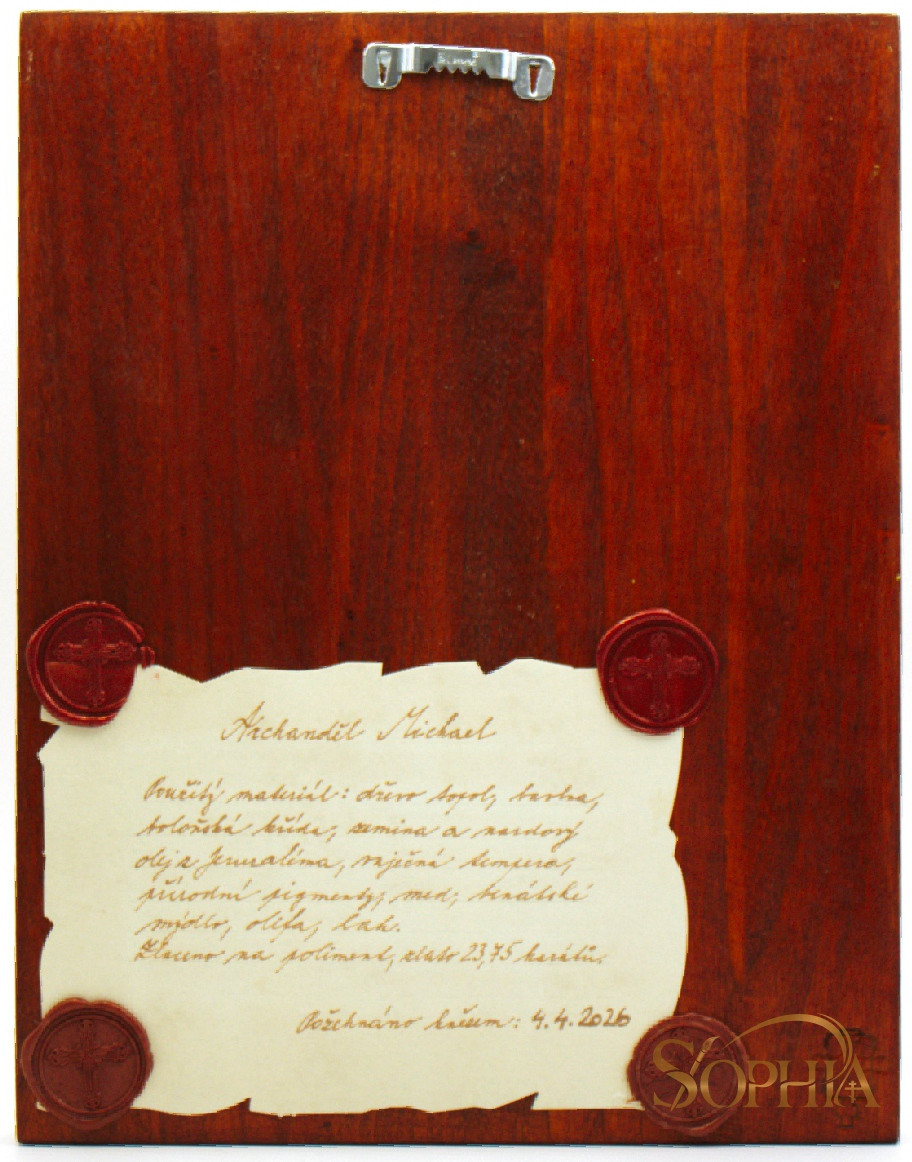 Archanděl Michael
Použitý materiál: dřevo topol, barva,
boloňská křída, zemina a nardový
olej z Jeruzaléma, vaječná tempera,
přírodní pigmenty, med, benátské
mýdlo, olifa, lak.
Zlaceno na poliment, zlato 23,75 karátů.
Požehnáno knězem: 4.4.2026
SOPHIA